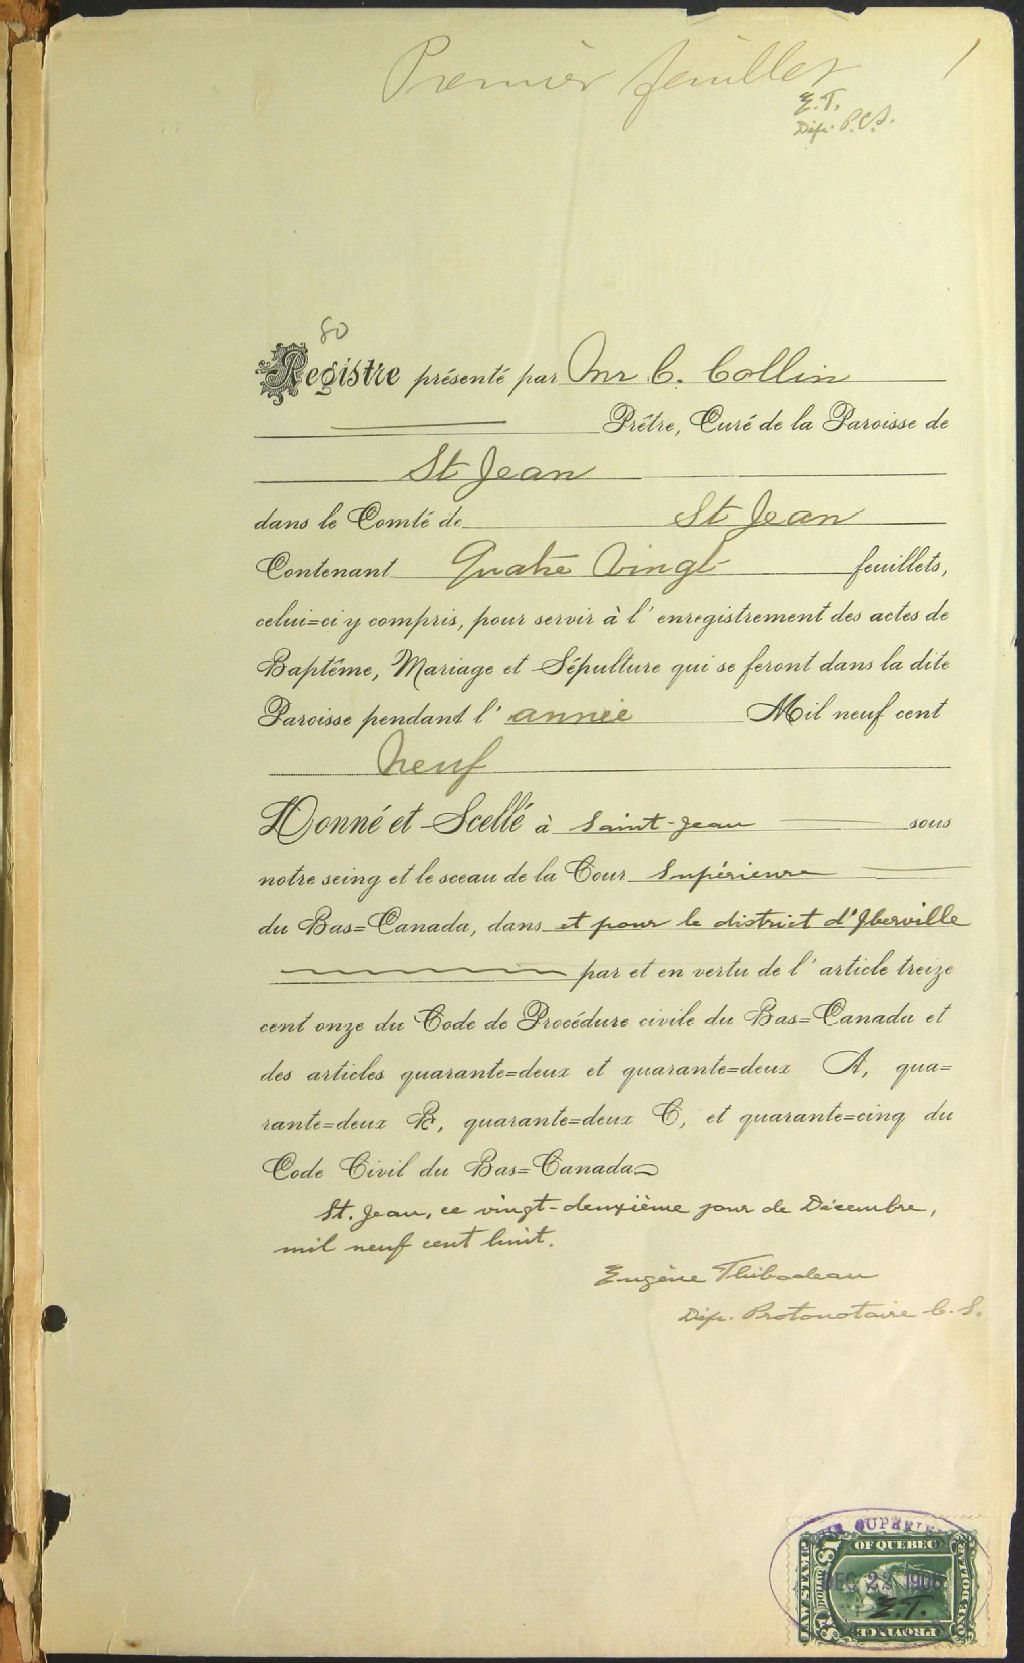 Premier feuillet 1
E. T.
Dép. P.C.S.
80
Registre présenté par Mr C. Collin
Prêtre, Curé de la Paroisse de
St Jean
dans le Comté de St Jean
Contenant Quatre Vingt feuillets,
celui=ci y compris, pour servir à l'enregistrement des actes de
Baptême, Mariage et Sépulture qui se feront dans la dite
Paroisse pendant l'année Mil neuf cent
Neuf
Donné et Scellé à Saint-Jean sous
notre seing et le sceau de la Cour Supérieure
du Bas=Canada, dans et pour le district d'Iberville
par et en vertu de l'article treize
cent onze du Code de Procédure civile du Bas=Canada et
des articles quarante=deux et quarante=deux A, qua=
rante=deux B, quarante=deux C, et quarante=cinq du
Code Civil du Bas=Canada
St. Jean, ce vingt-deuxième jour de Décembre,
mil neuf cent huit.
Eugène Thibodeau
Dép. Protonotaire C. S.
SUPÉRIE
OF QUEBEC
LAW STAMP
$1 DOLLAR
DEC 22 1908
E.T.
ONE DOLLAR
PROVINCE